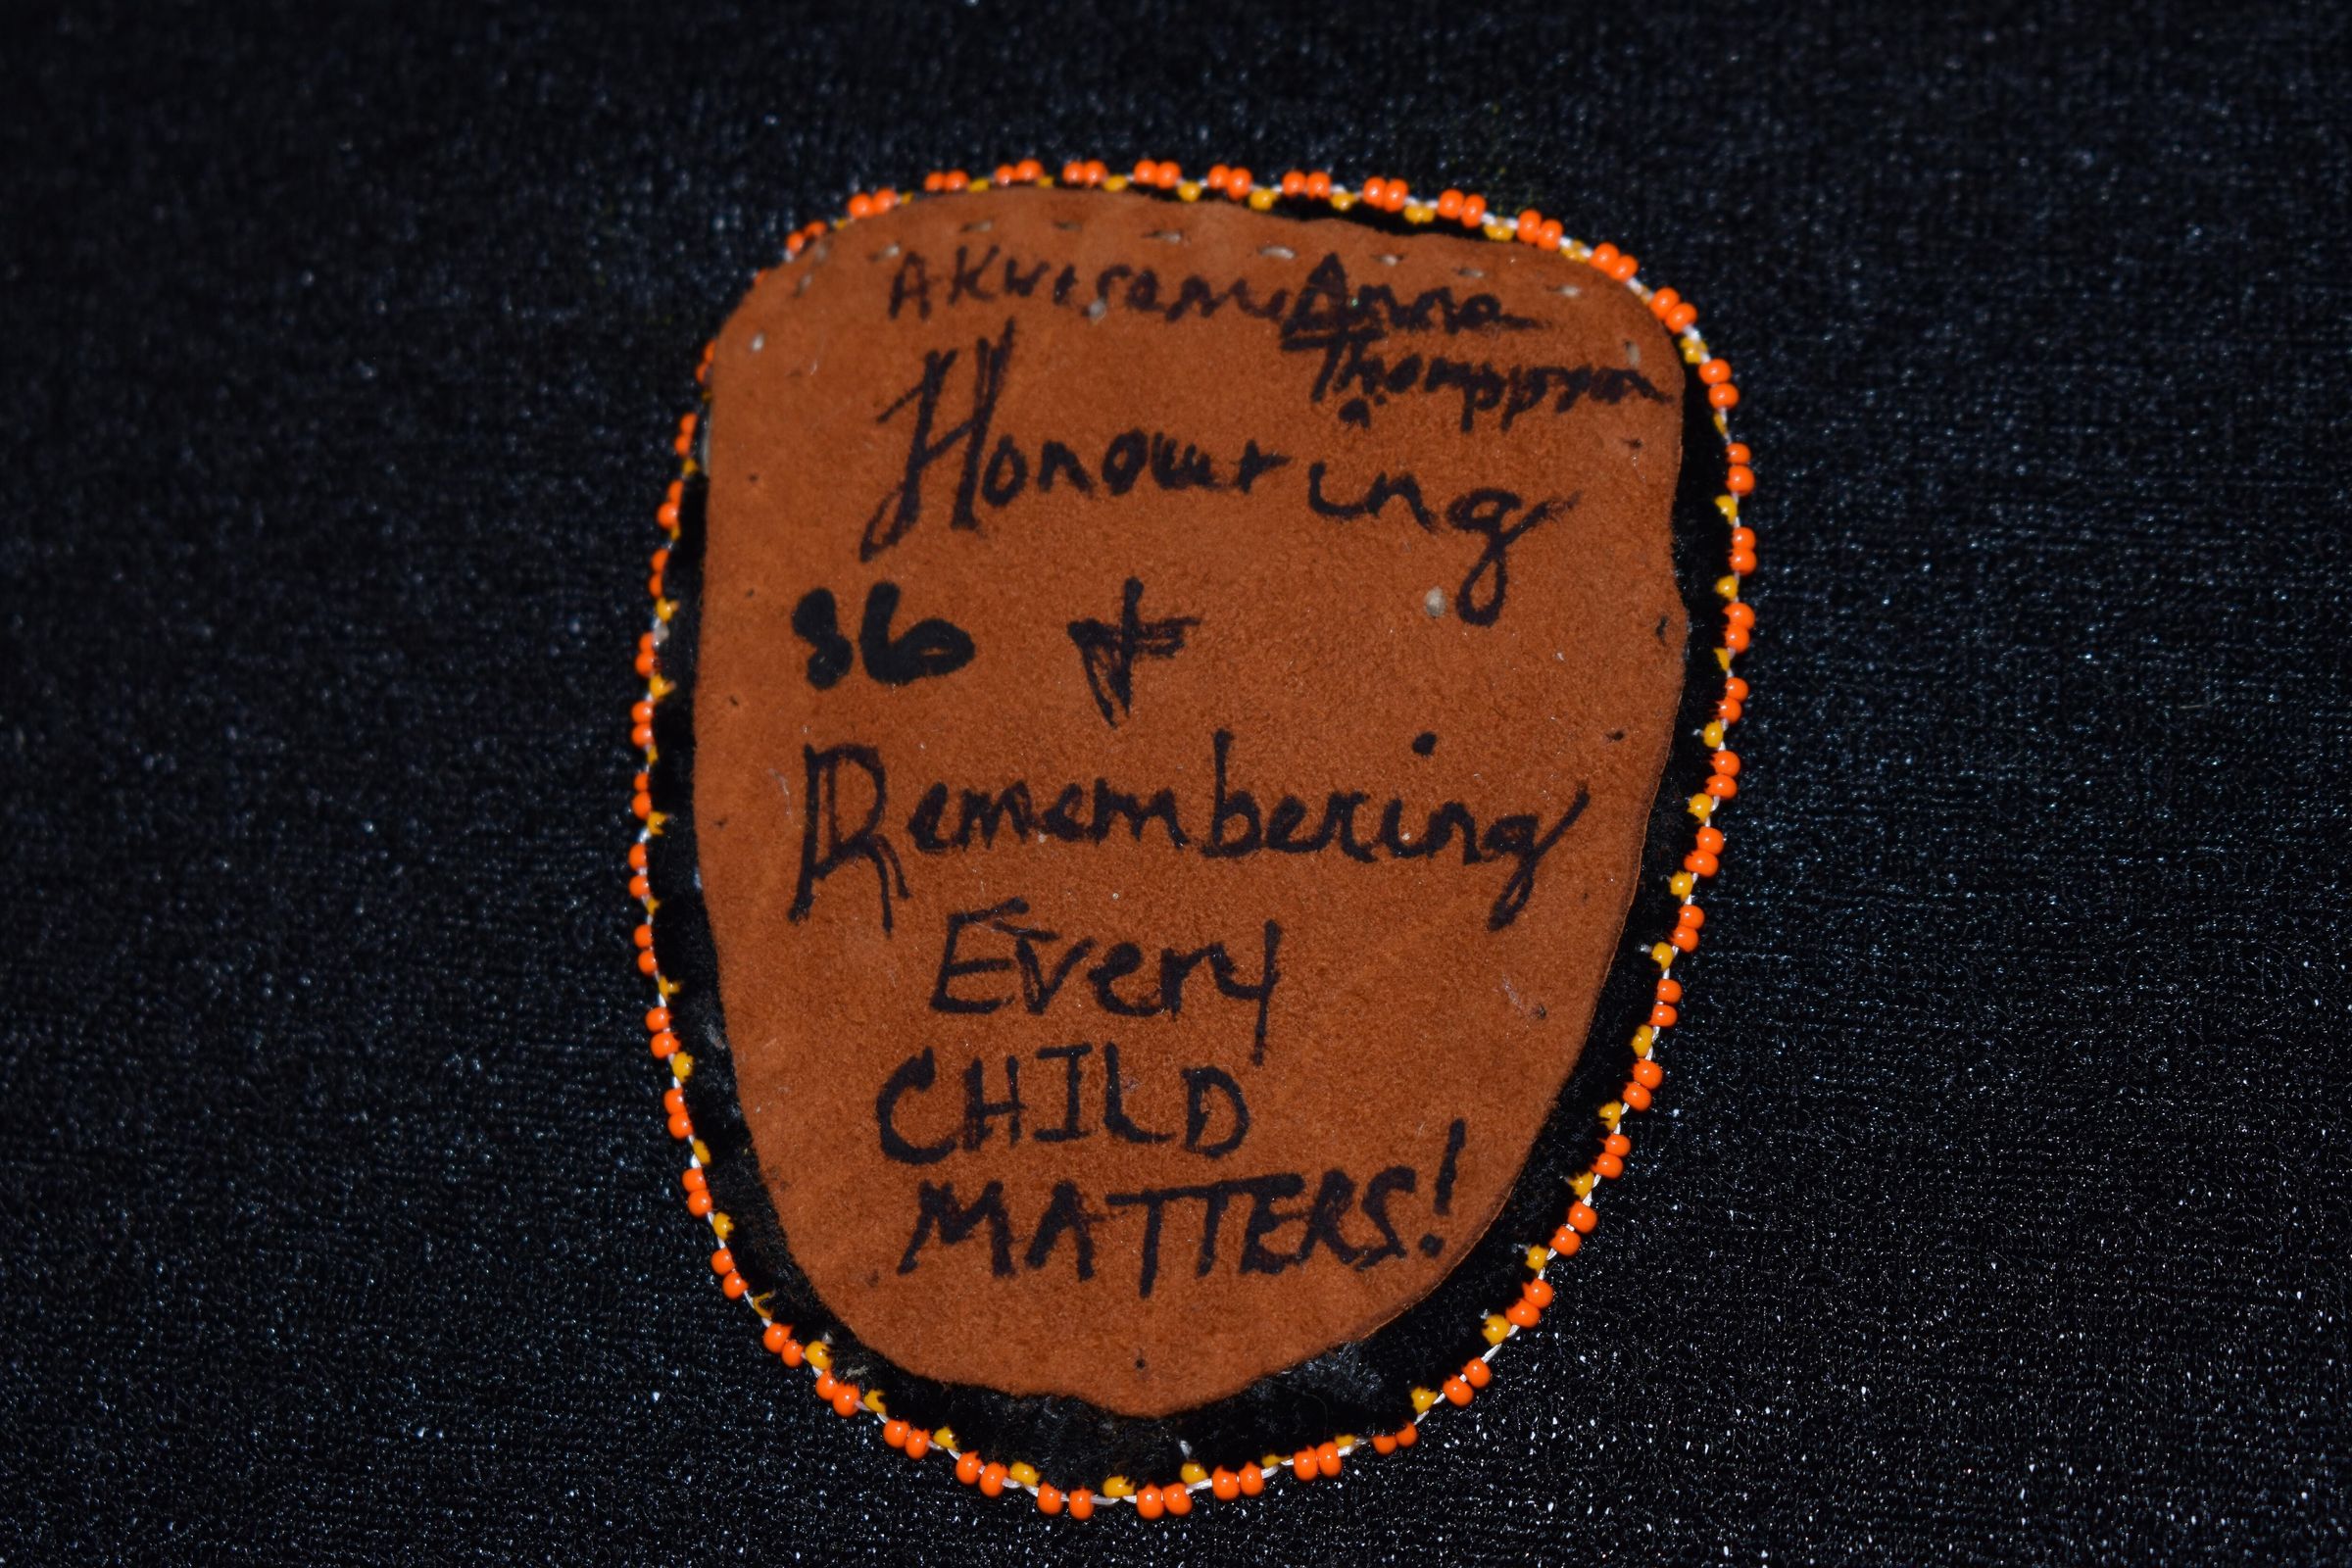 AKwesasne Anna
Thompson
Honouring
86 +
Remembering
Every
CHILD
MATTERS!